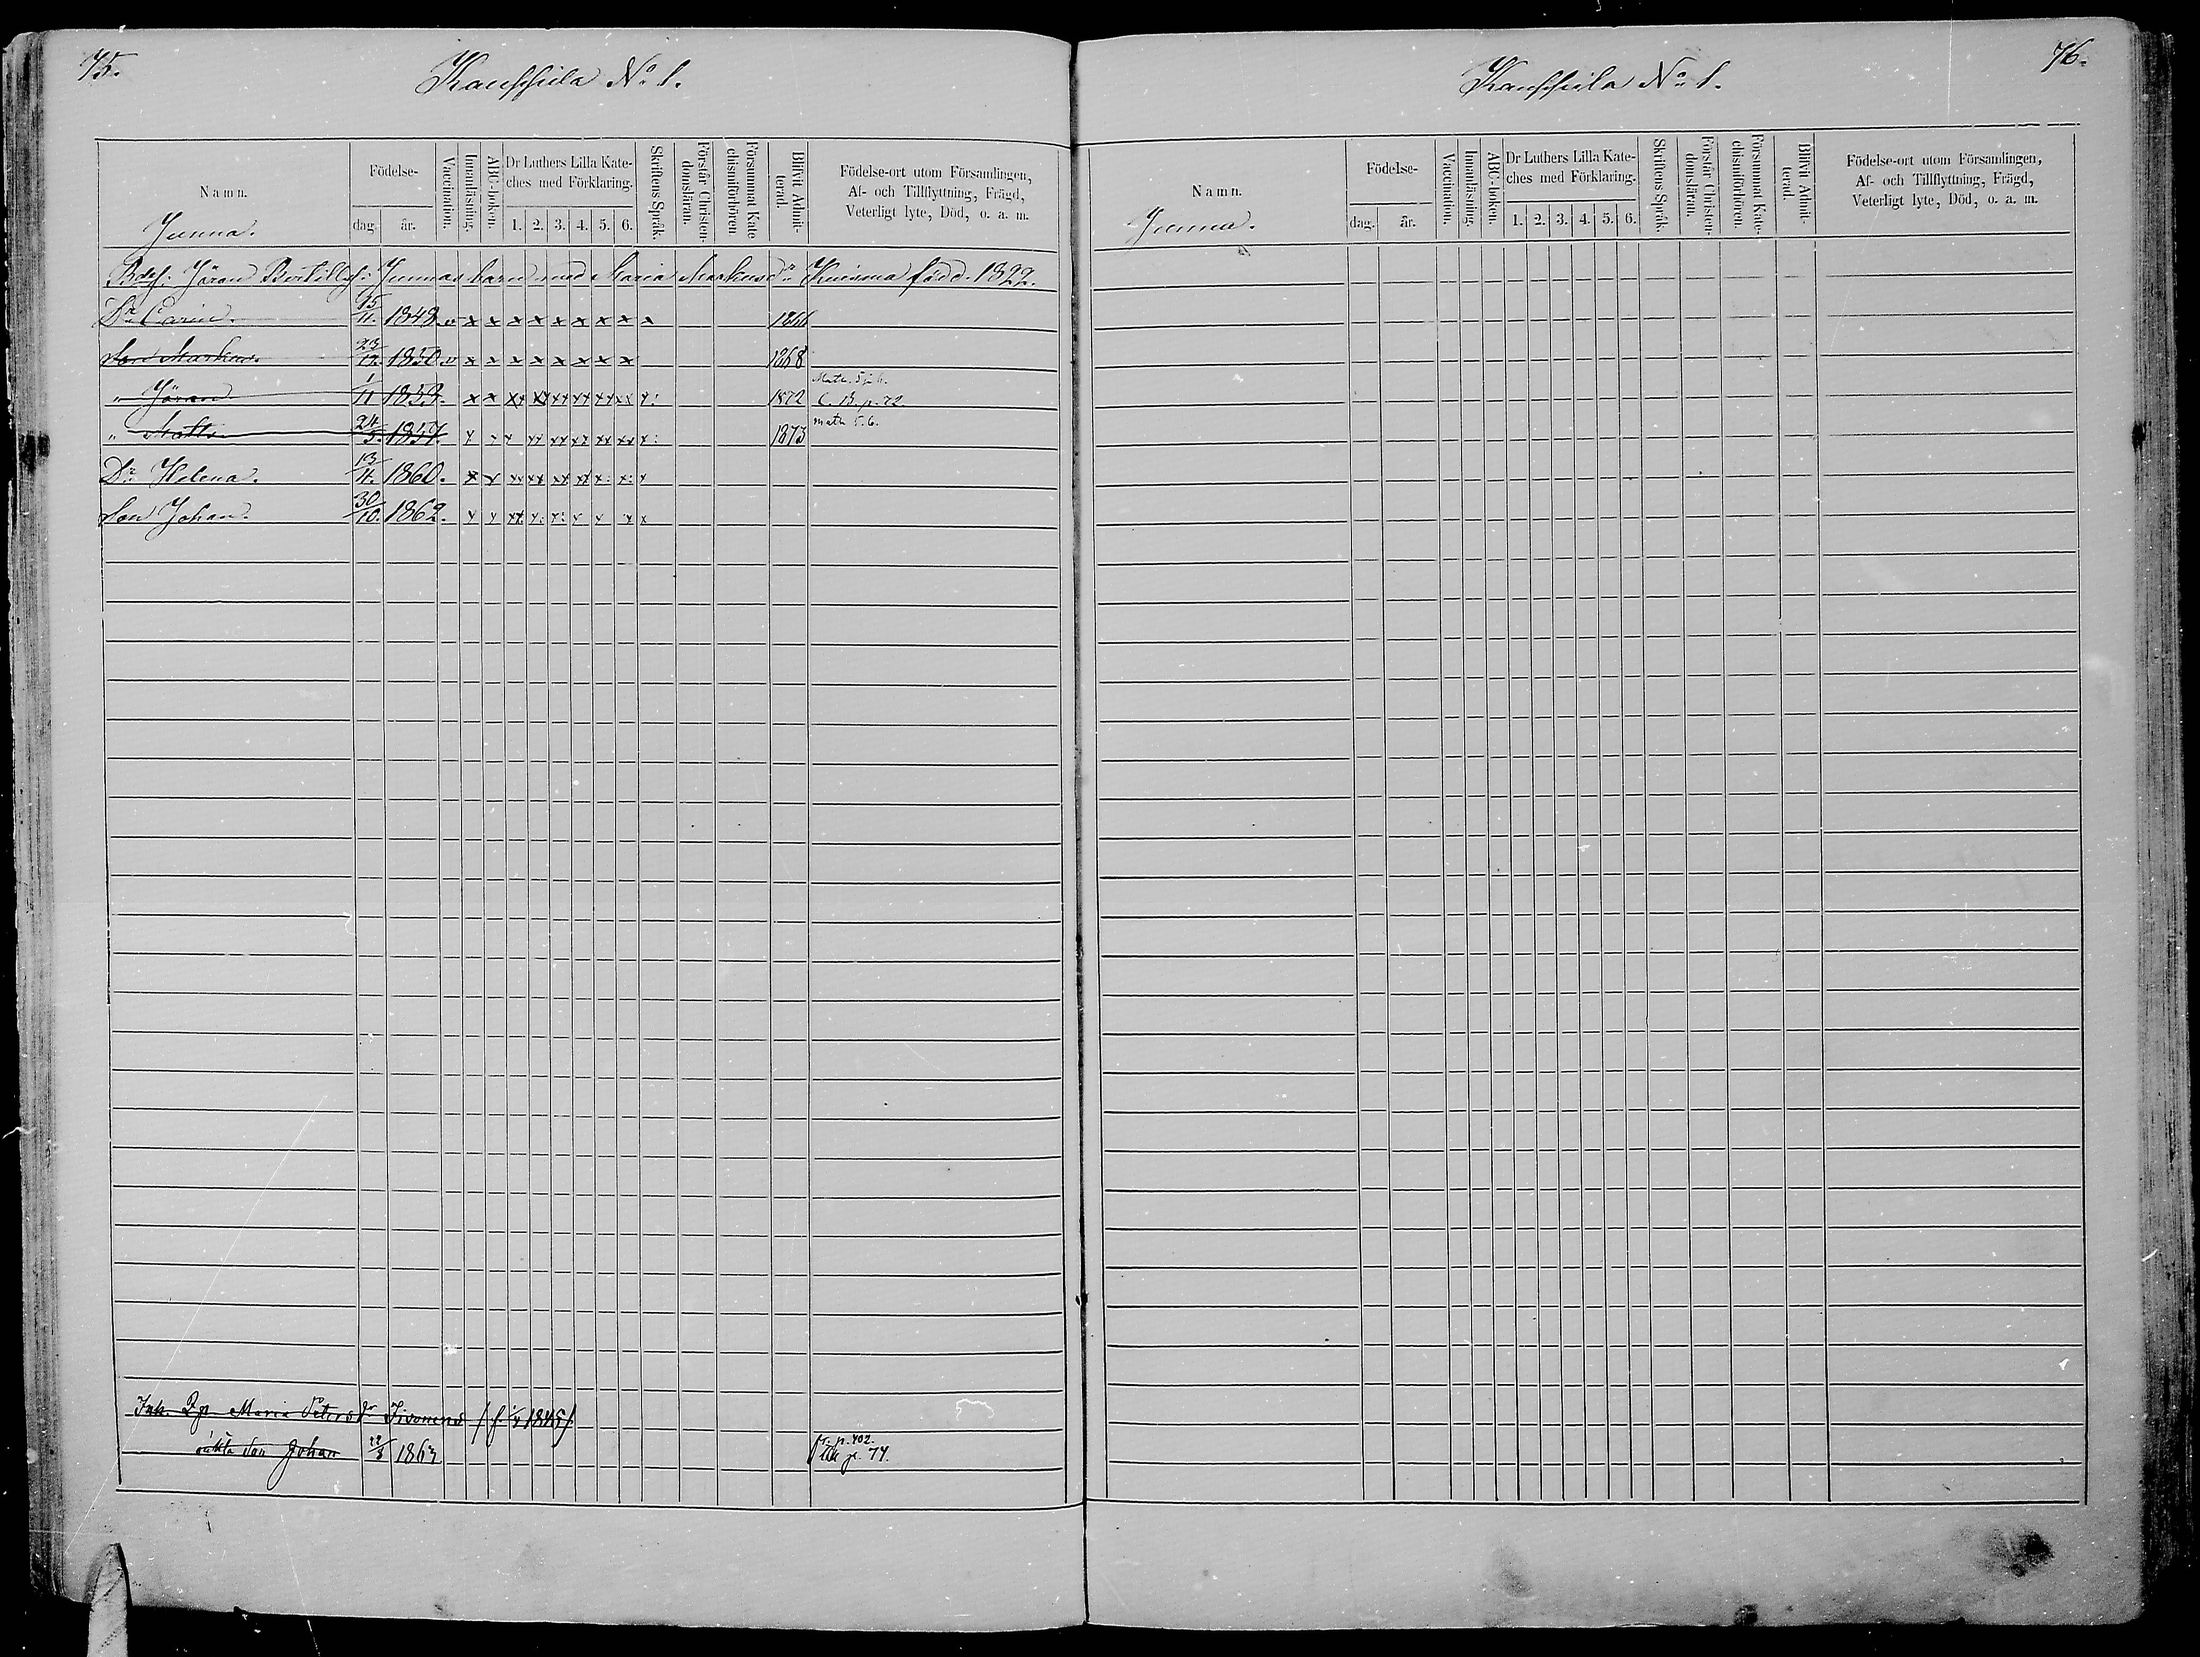 75.
Kansfsila No 1.
Namn.
Junna.
Födelse-
dag. år.
Vaccination.
Innanläsning.
ABC-boken.
Dr Luthers Lilla Kate-
ches med Förklaring.
1. 2. 3. 4. 5. 6.
Skriftens Språk.
Förstår Christen-
domsläran.
Försummat Kate
chismiförhören.
Blifvit Admit-
terad.
Födelse-ort utom Församlingen,
Af- och Tillflyttning, Frägd,
Veterligt lyte, Död, o. a. m.
Jöran Junnas barn med Maria Markusdr Kuisma född. 1822.
Dr Carin. 15/11. 1848. v x x x x x x x x x 1866
Son Markus. 23/12. 1850. v x x x x x x x x 1868
" Jöran 1/11 1853. x x xx xx xx xx xx xx x: 1872 C. B. p. 72
" Matts 24/5. 1857. x x x xx xx xx xx xx x: 1873
Dr Helena. 13/4. 1860. x x xx xx xx xx x: x: x
Son Johan. 30/10. 1862. x x xx x: x: x x x x
Maria Petersdr 1845
oäkta Son Johan 22/3 1863
fr. p. 402.
Till p. 74.
76.
Kansfsila No 1.
Namn.
Junna.
Födelse-
dag. år.
Vaccination.
Innanläsning.
ABC-boken.
Dr Luthers Lilla Kate-
ches med Förklaring.
1. 2. 3. 4. 5. 6.
Skriftens Språk.
Förstår Christen-
domsläran.
Försummat Kate-
chismiförhören.
Blifvit Admit-
terad.
Födelse-ort utom Församlingen,
Af- och Tillflyttning, Frägd,
Veterligt lyte, Död, o. a. m.